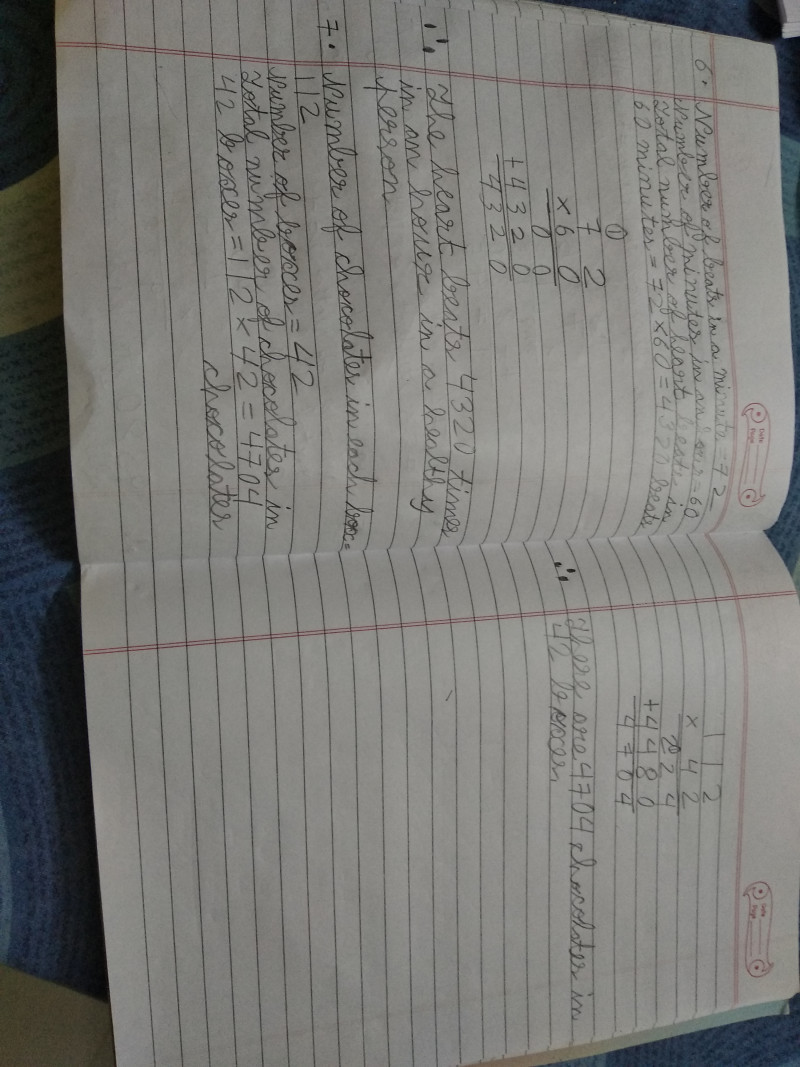 Date
Page
6. Number of beats in a minute = 72
Number of minutes in an hour = 60
Total number of heart beats in
60 minutes = 72 × 60 = 4320 beats
1
7 2
× 6 0
0 0
+ 4 3 2 0
4 3 2 0
∴ The heart beats 4320 times
in an hour in a healthy
person
7. Number of chocolates in each box =
112
Number of boxes = 42
Total number of chocolates in
42 boxes = 112 × 42 = 4704
chocolates
Date
Page
1 1 2
× 4 2
2 2 4
+ 4 4 8 0
4 7 0 4
∴ There are 4704 chocolates in
42 boxes.